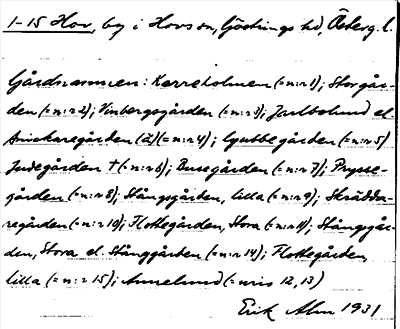 1-15 Hov, by i Hovs sn, Göstrings hd, Österg. l.
Gårdsnamnen: Karreholmen (= n:r 1); Storgår-
den (= n:r 2); Vinbergsgården (= n:r 3); Jordbolund el.
Snickaregården (ä) (= n:r 4); Gubbegården (= n:r 5)
Judegården † (= n:r 6); Busegården (= n:r 7); Prysse-
gården (= n:r 8); Stångsgården, lilla (= n:r 9); Skrädda-
regården (= n:r 10); Flottegården, Stora (= n:r 11); Stångsgår-
den, Stora el. Stånggården (= n:r 14); Flottegården,
lilla (= n:r 15); Annelund (= n:ris 12, 13)
Erik Alm 1931